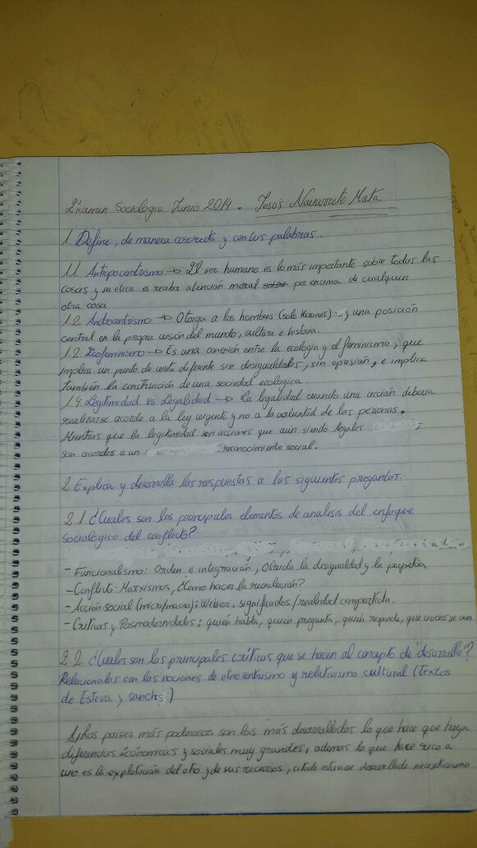 Examen Sociología Junio 2014. Jesús Navarrete Mata
1. Define, de manera concreta y con tus palabras.
1.1. Antropocentrismo → El ser humano es lo más importante sobre todas las
cosas y su ética es recibir atención moral por encima de cualquier
otra cosa.
1.2. Androcentrismo → Otorga a los hombres (solo varones) y una posición
central en la propia visión del mundo, cultura e historia.
1.2. Ecofeminismo → Es una conexión entre la ecología y el feminismo, que
implica un punto de vista diferente sin desigualdades, sin opresión, e implica
también la construcción de una sociedad ecológica.
1.4. Legitimidad vs Legalidad → La legalidad cuando una acción debería
realizarse acorde a la ley vigente y no a la voluntad de las personas.
Mientras que la legitimidad son acciones que aún siendo legales
son acordes a un reconocimiento social.
2. Explica y desarrolla las respuestas a las siguientes preguntas.
2.1. ¿Cuáles son los principales elementos de análisis del enfoque
sociológico del conflicto?
- Funcionalismo: Orden e integración, Olvida la desigualdad y la
- Conflicto: Marxismos, ¿Cómo hacer la revolución?
- Acción social (micro/macro): Weber. significados/realidad compartida.
- Críticas y Posmodernidades: quién habla, quien pregunta, quien responde, que
2.2. ¿Cuáles son las principales críticas que se hacen al concepto de "desarrollo"?
Relacionalas con las nociones de etnocentrismo y relativismo cultural (textos
de Esteva y
1) Los países más poderosos son los más desarrollados lo que hace que haya
diferencias económicas y sociales muy grandes, además lo que hace rico a
uno es la explotación del otro y de sus recursos,